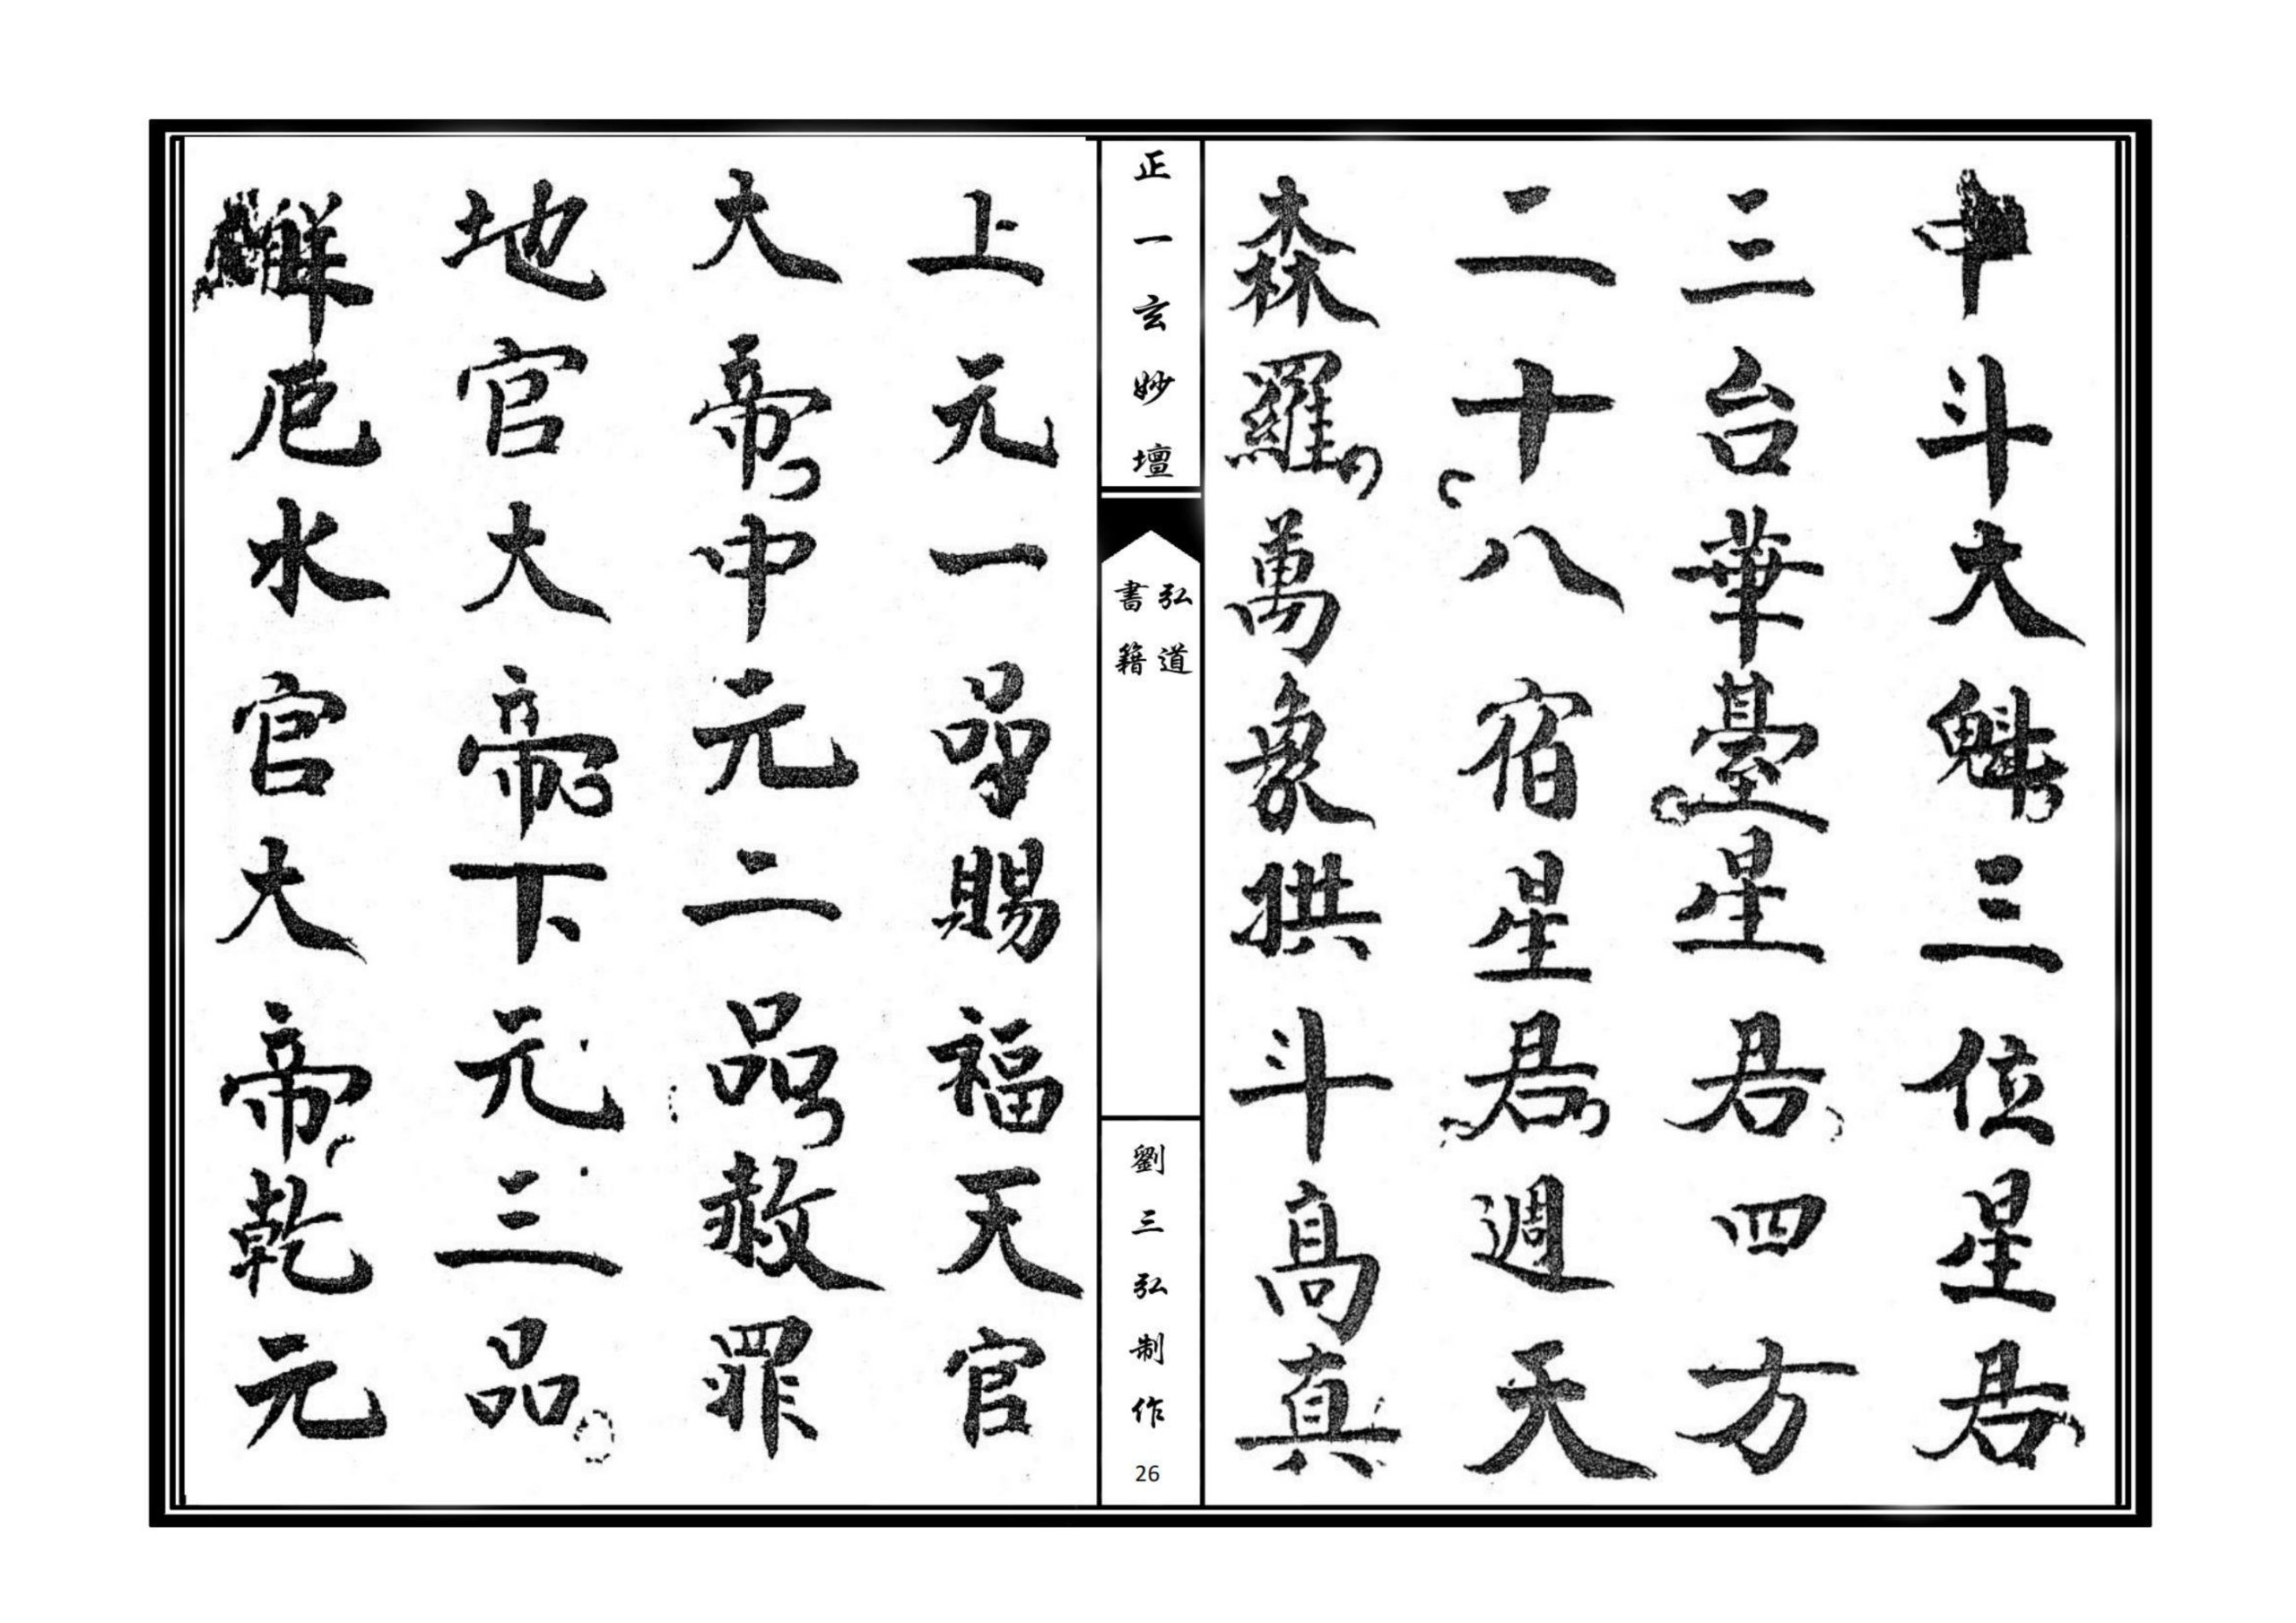 中斗大魁三位星君
三台華臺星君四方
二十八宿星君週天
森羅萬象拱斗高真
正一玄妙壇
弘道
書籍
劉三弘制作
26
上元一品賜福天官
大帝中元二品赦罪
地官大帝下元三品
解厄水官大帝乾元